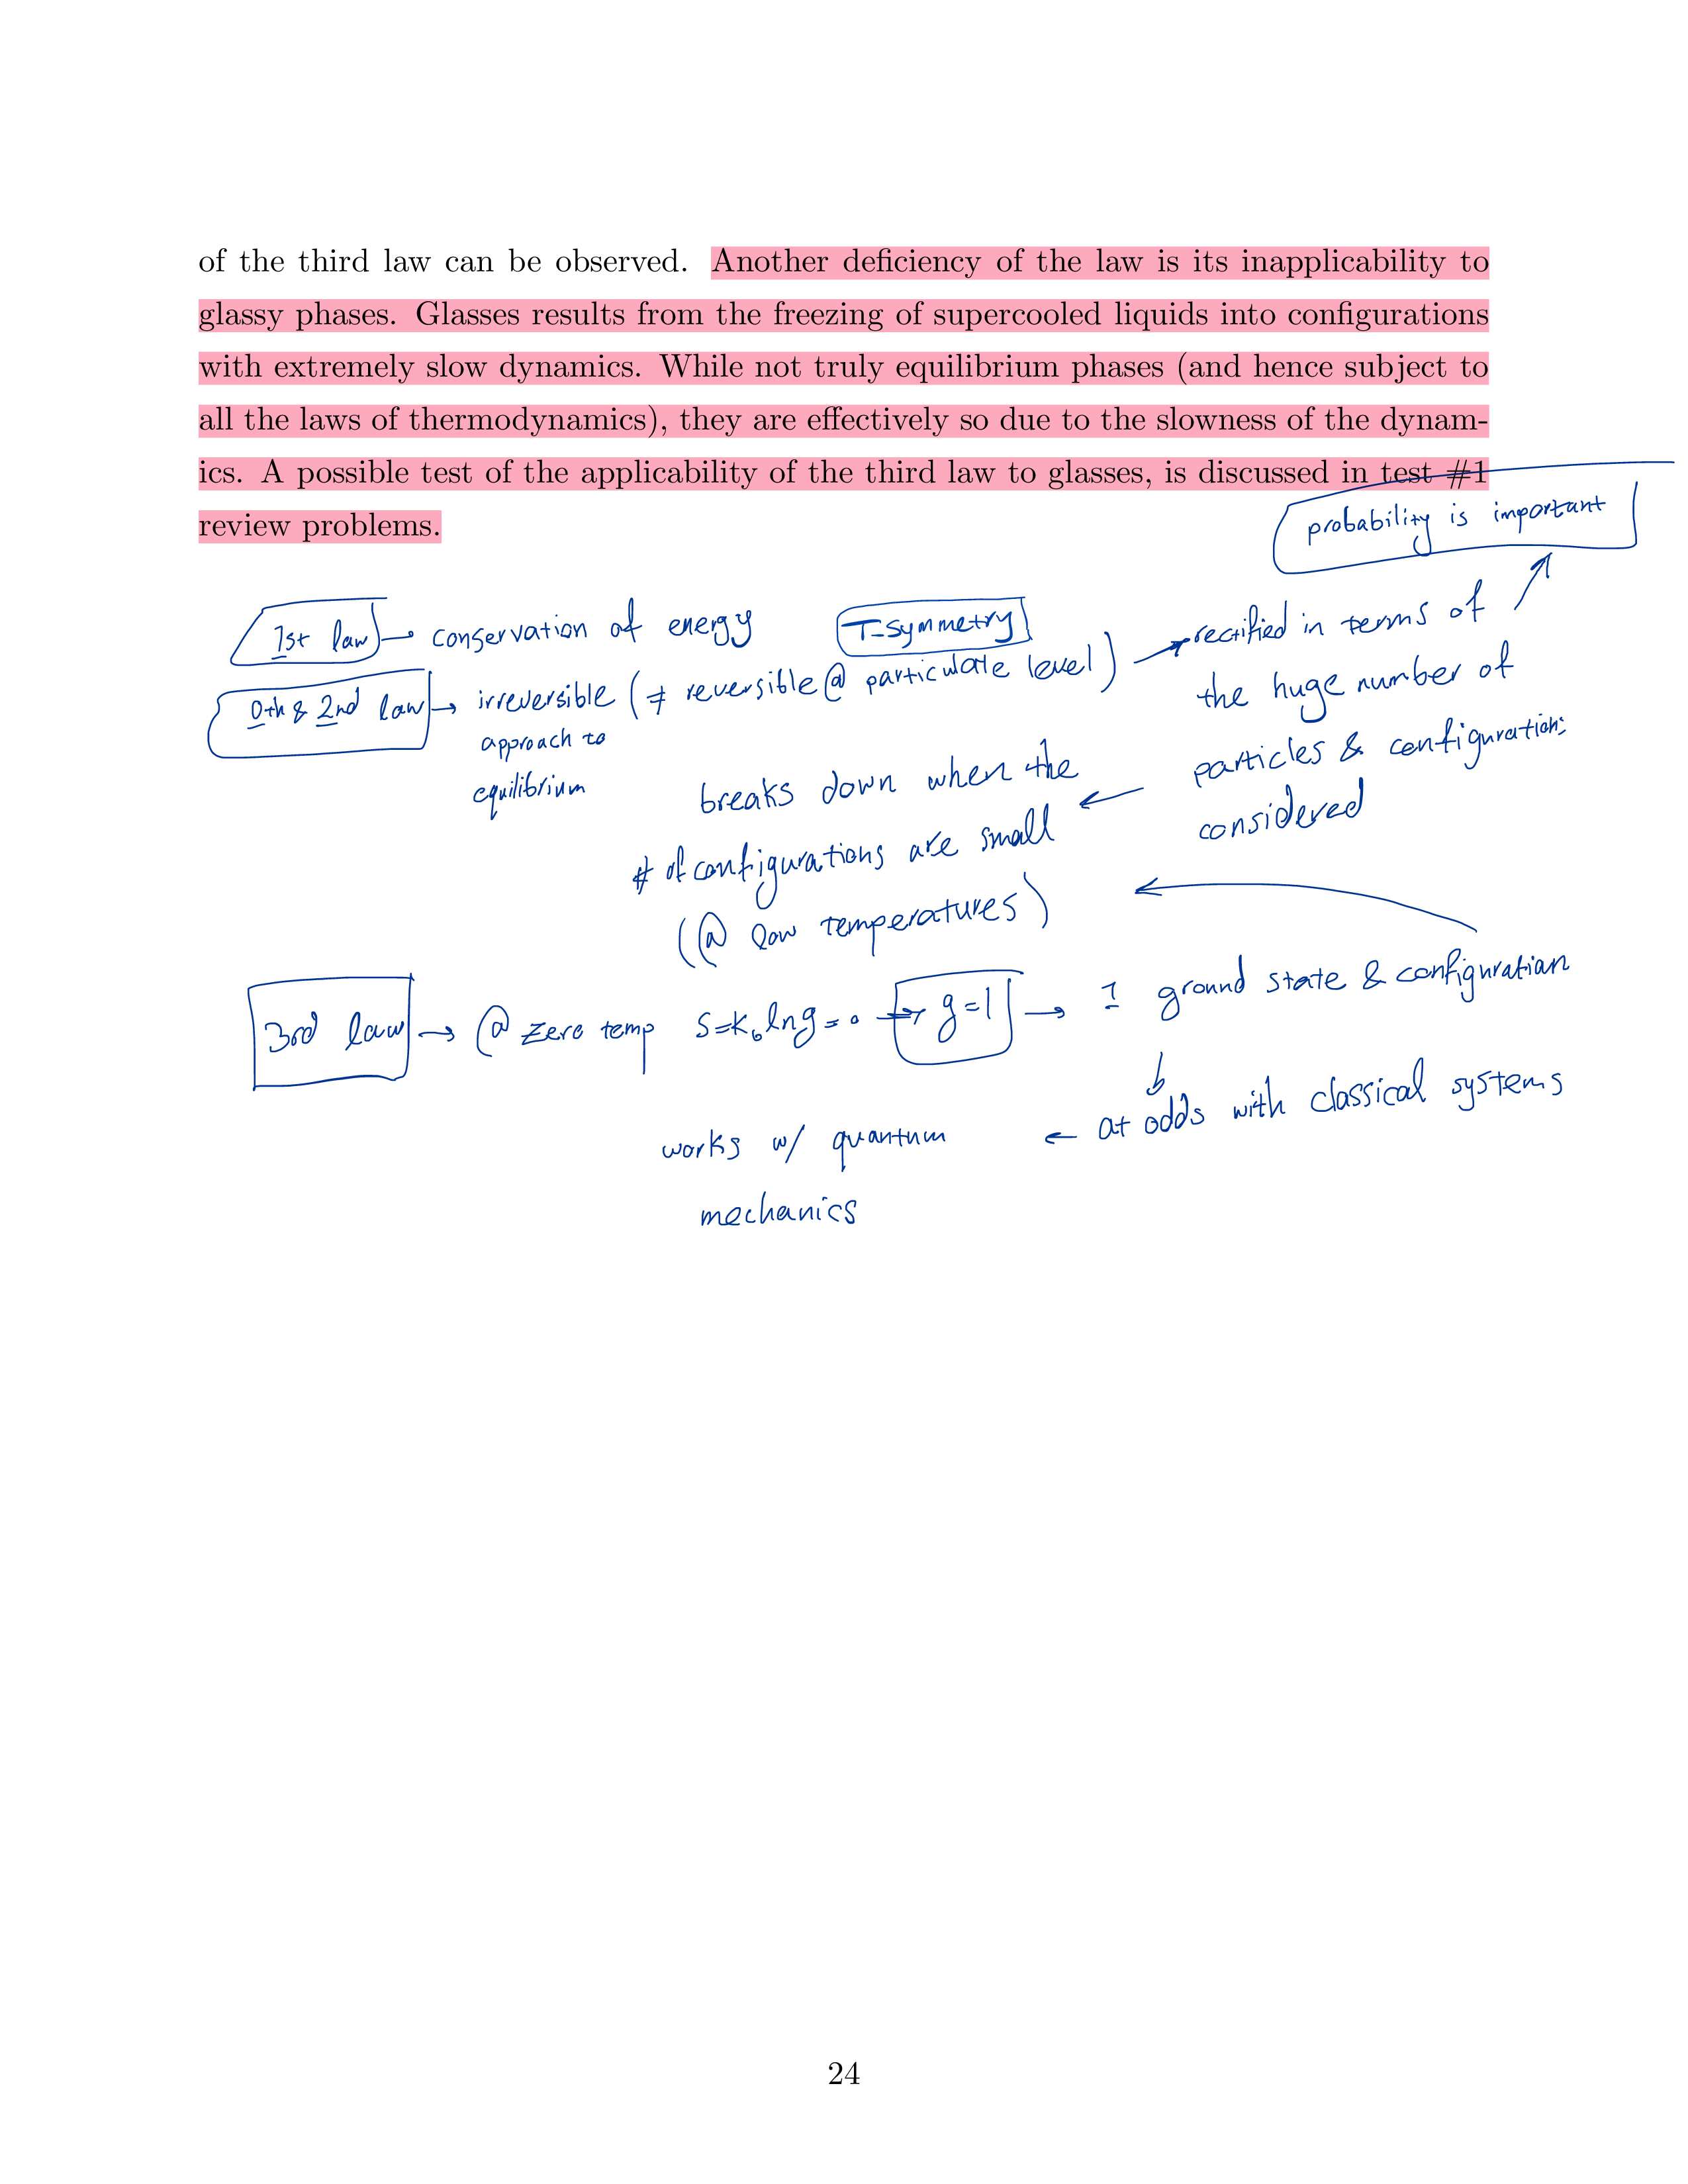 of the third law can be observed. Another deficiency of the law is its inapplicability to
glassy phases. Glasses results from the freezing of supercooled liquids into configurations
with extremely slow dynamics. While not truly equilibrium phases (and hence subject to
all the laws of thermodynamics), they are effectively so due to the slowness of the dynam-
ics. A possible test of the applicability of the third law to glasses, is discussed in test #1
review problems.
probability is important
1st law → conservation of energy
T-symmetry
0th & 2nd law → irreversible (≠ reversible @ particulate level)
approach to
equilibrium
→ rectified in terms of
the huge number of
particles & configurations
considered
breaks down when the ←
# of configurations are small
(@ low temperatures)
3rd law → @ zero temp S=k_b ln g = 0 → g=1 → 1 ground state & configuration
at odds with classical systems
works w/ quantum ←
mechanics
24